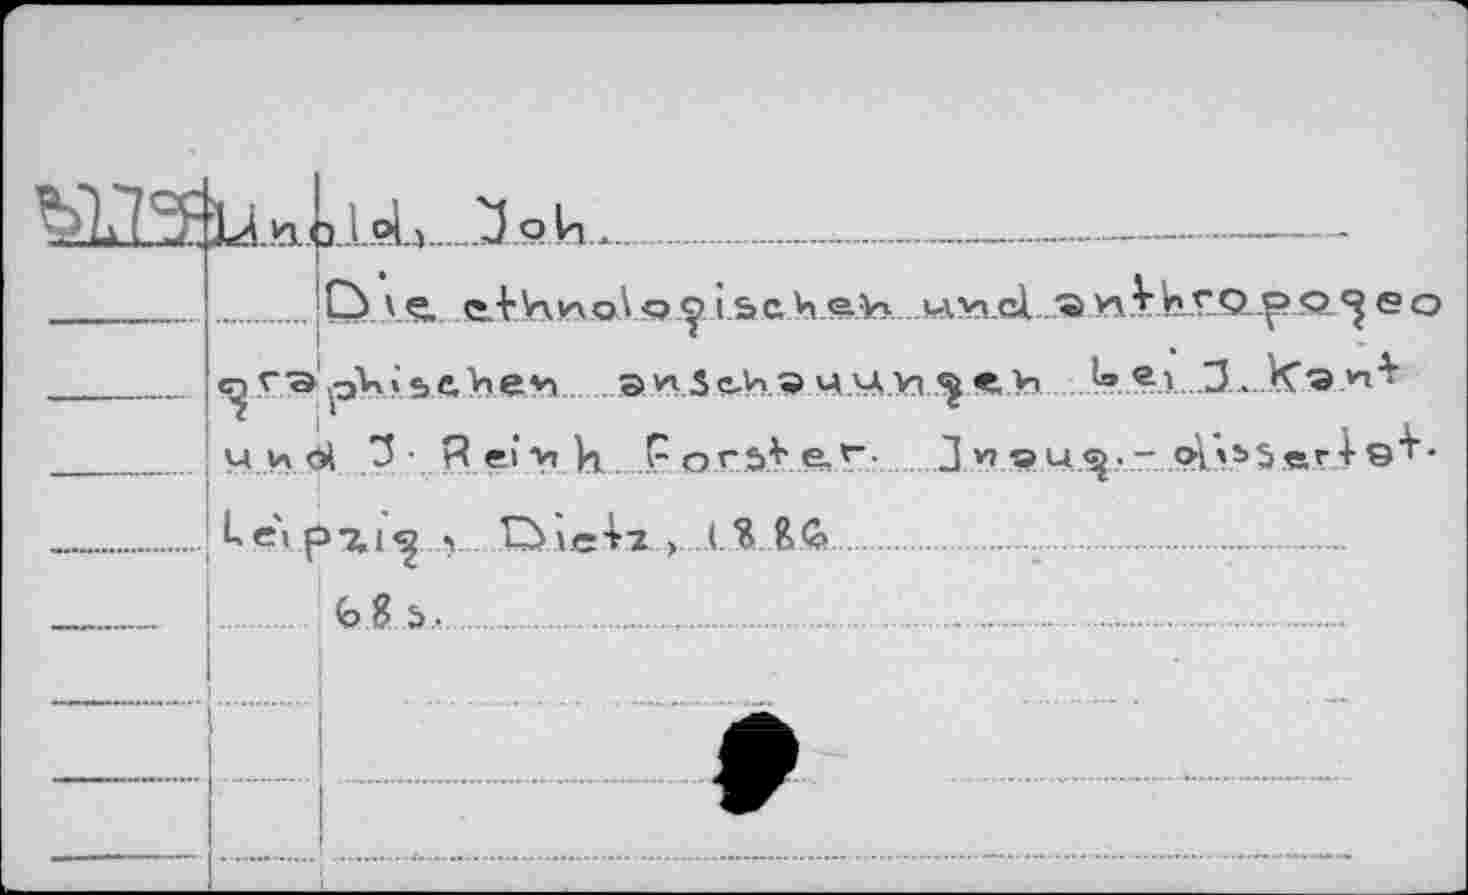 Unold, Joh.
Die ethnologischen und anthropogeo
graphischen anschauungen bei J. Kant
und J. Reinh Forster. Inaug.-dissertat.
Leipzig, Dietz, 1886
68 s.